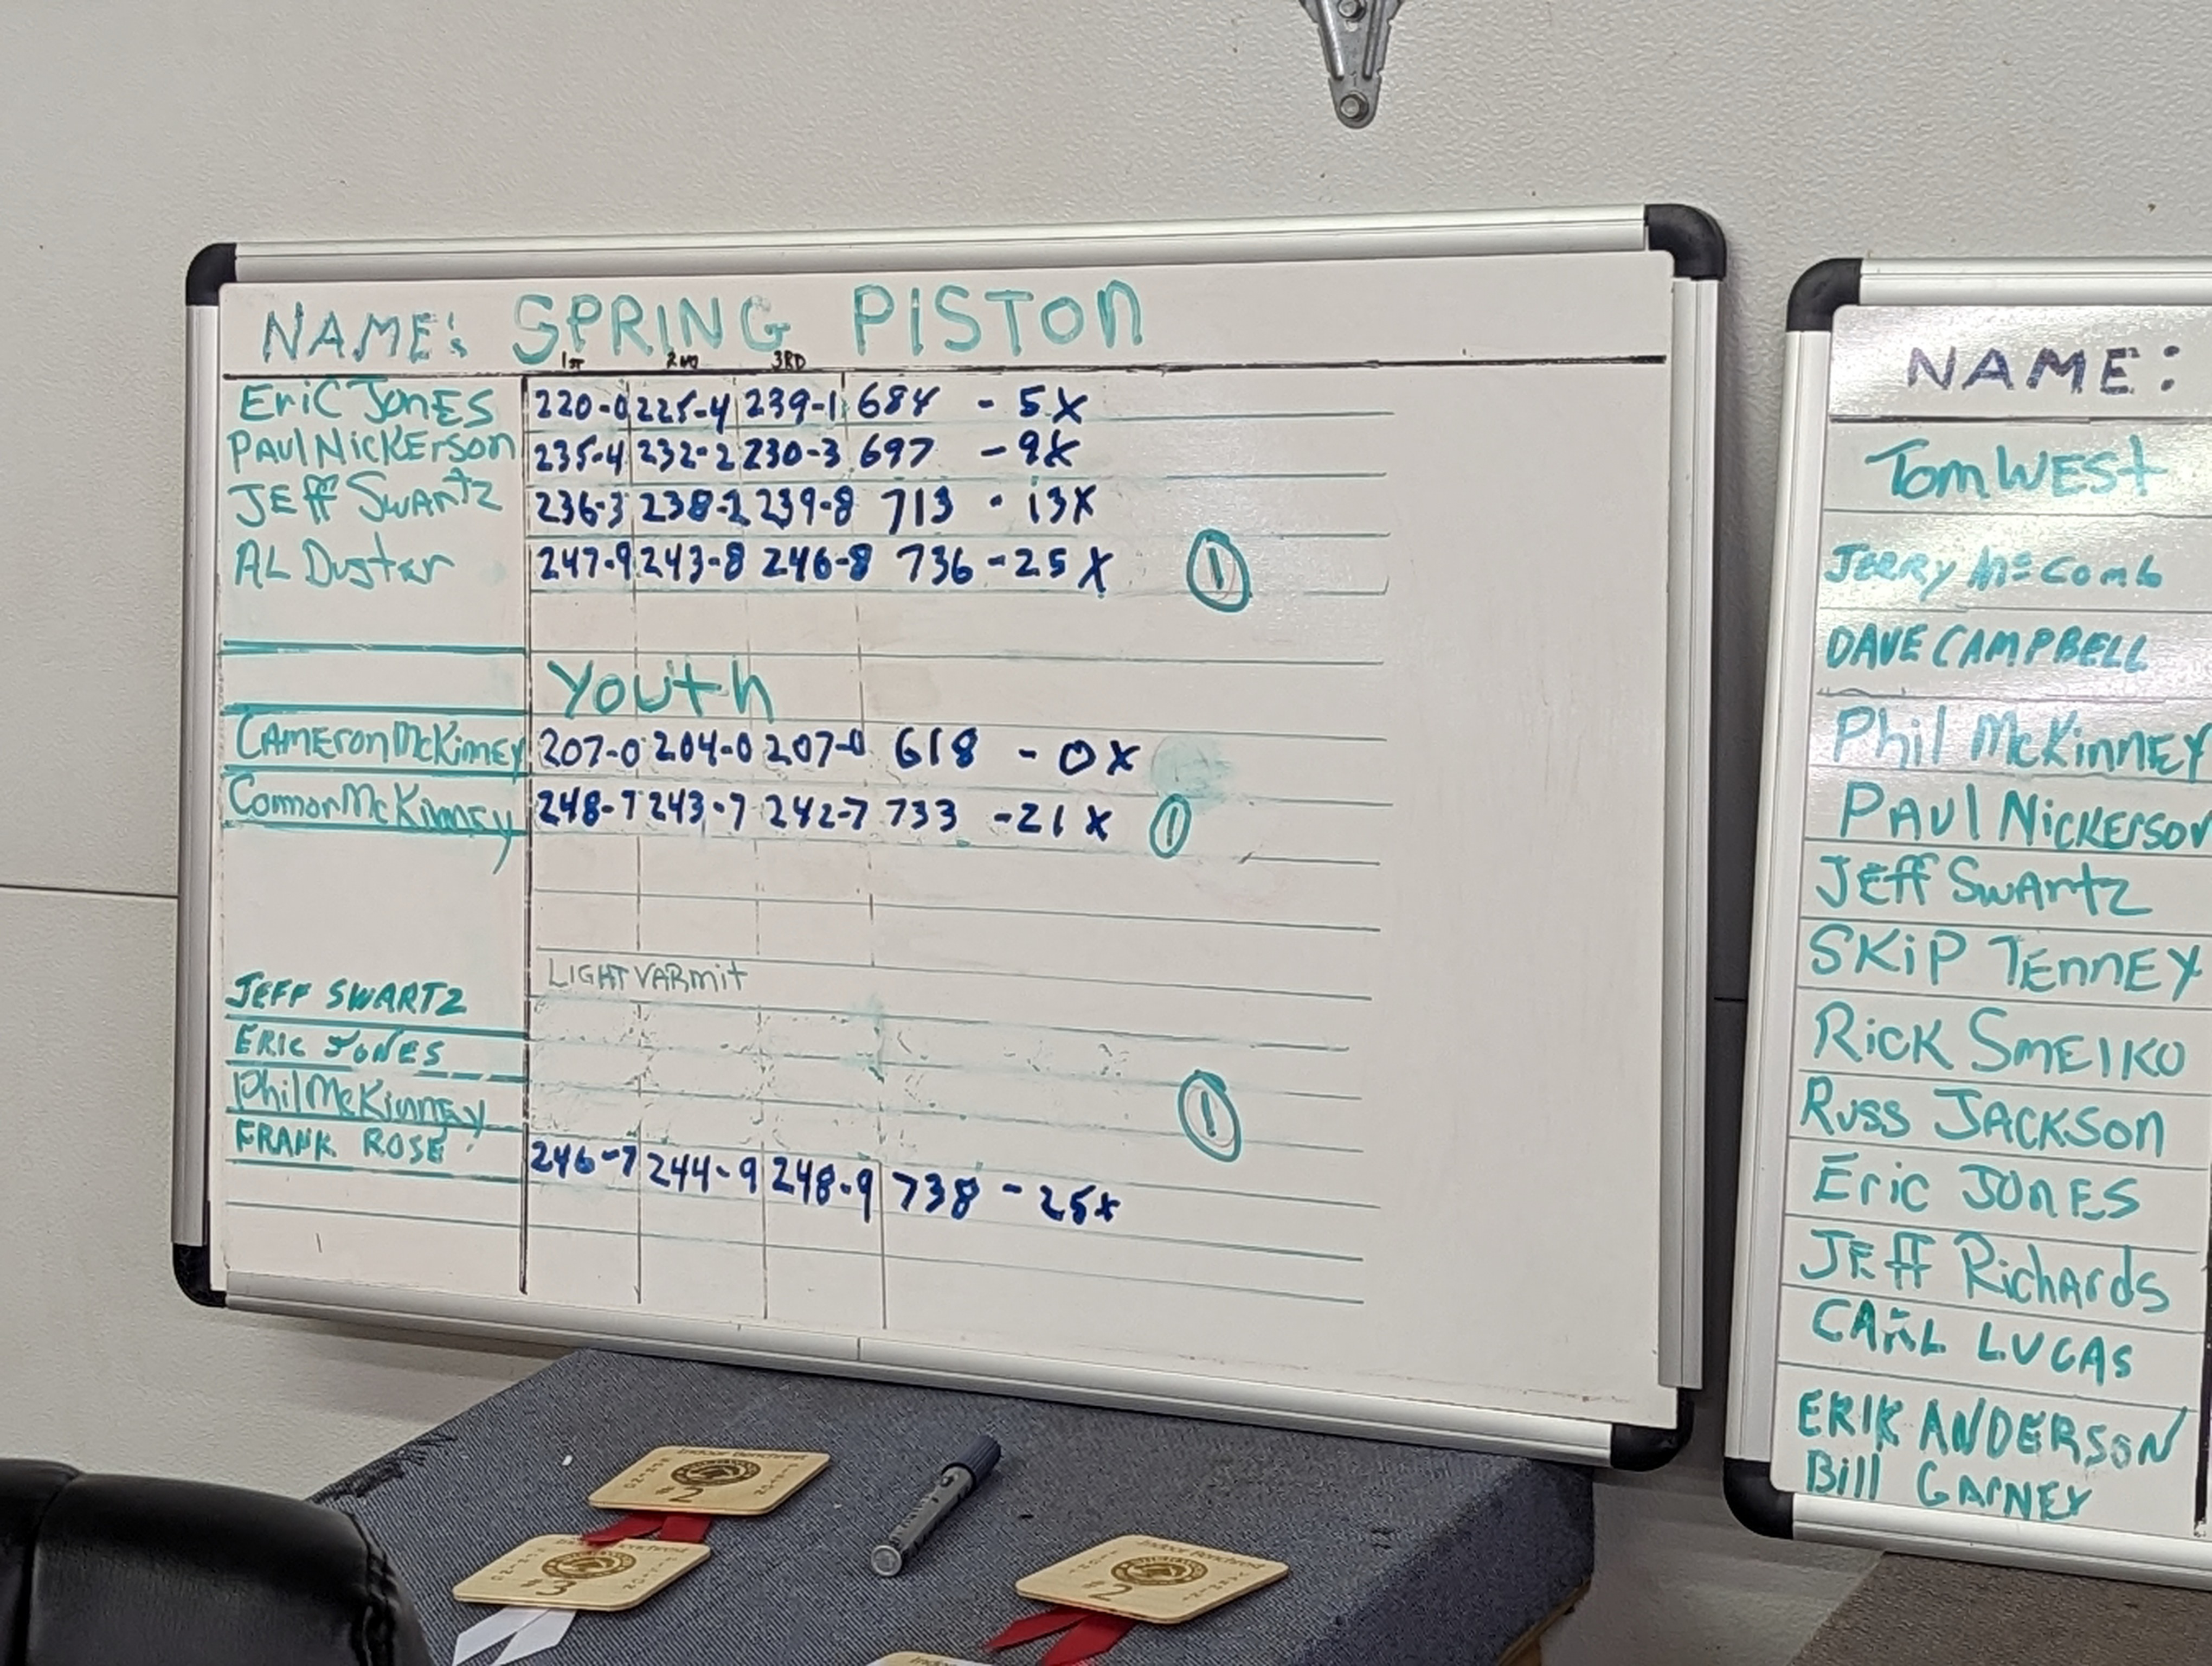 NAME: SPRING PISTON
1ST 2ND 3RD
Eric Jones 220-0 225-4 239-1 684 - 5X
Paul Nickerson 235-4 232-2 230-3 697 - 9X
Jeff Swartz 236-3 238-2 239-8 713 - 13X
AL Duster 247-9 243-8 246-8 736 - 25 X 1
Youth
Cameron McKinney 207-0 204-0 207-0 618 - 0X
Connor McKinney 248-7 243-7 242-7 733 - 21 X 1
LIGHT VARMIT
JEFF SWARTZ
ERIC JONES
Phil McKinney 1
FRANK ROSE 246-7 244-9 248-9 738 - 25x
NAME:
Tom WEST
Jerry McComb
DAVE CAMPBELL
Phil McKinney
Paul Nickerson
Jeff Swartz
SKIP TENNEY
Rick SMEIKO
Russ JACKSON
Eric JONES
Jeff Richards
CARL LUCAS
ERIK ANDERSON
Bill GARNEY
Indoor Benchrest
#2
Indoor Benchrest
#3
Indoor Benchrest
#2